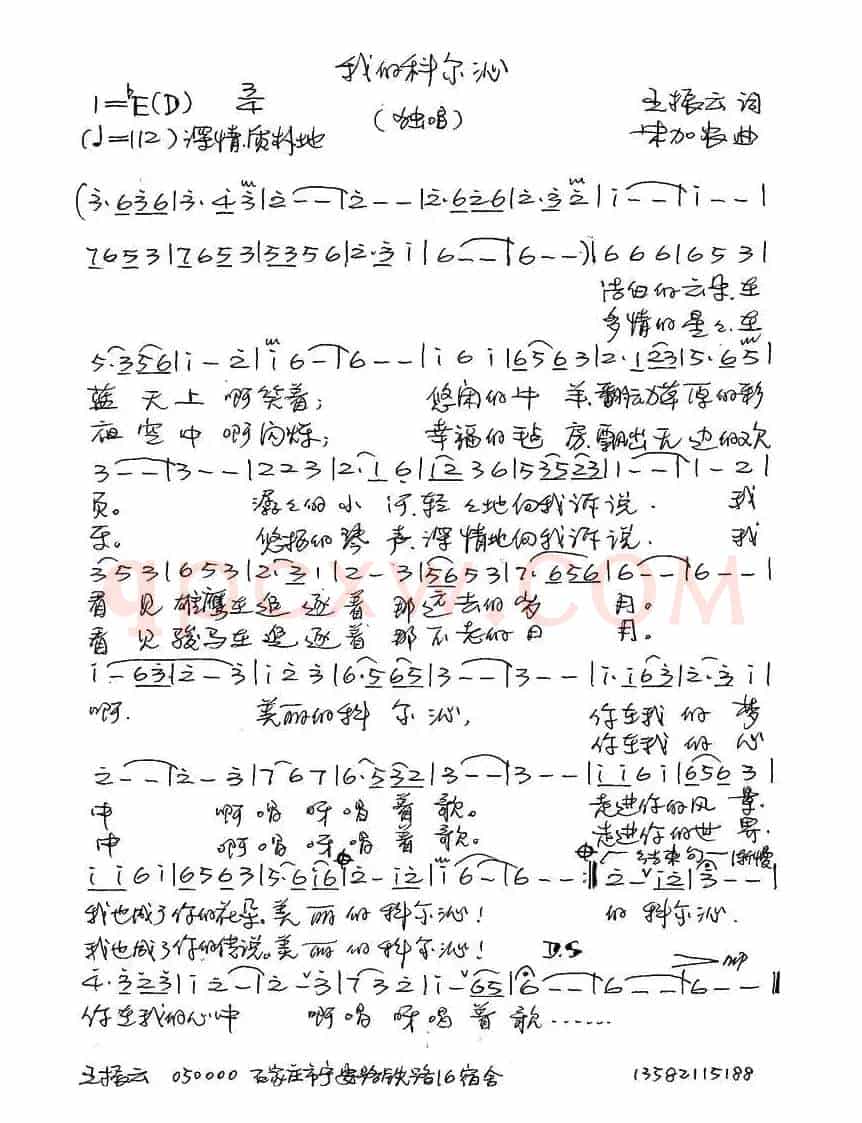 我的科尔沁
1=♭E(D) 3/4
(独唱)
王振云 词
(♩=112) 深情.质朴地
加农 曲
(3̇·6̲3̲̇6̲|3̇·4̲̇3̲̇|2̇--|2̇--|2̇·6̲2̲̇6̲|2̇·3̲̇2̲̇|1̇--|1̇--|
7̲6̲5̲3|7̲6̲5̲3|5̲3̲5̲6|2̇·3̲̇1̇|6--|6--)|6 6 6|6 5 3|
洁白的云朵.在
多情的星々.在
5·3̲5̲6̲|1̇-2̇|1̇6-|6--|1̇ 6 1̇|6̲5̲6̲3|2·1̲2̲3̲|5·6̲5̲|
蓝天上 啊笑着; 悠闲的牛羊.翻动草原的彩
夜空中 啊闪烁; 幸福的毡房.飘出无边的欢
3--|3--|2 2 3|2·1̲6̣|1̲2̲3 6|5̲3̲5̲2̲3̲|1--|1-2|
页。 潺々的小河.轻々地向我诉说. 我
乐。 悠扬的琴声.深情地向我诉说. 我
3 5 3|6 5 3|2·3̲1|2-3|5̲6̲5 3|7·6̲5̲6̲|6--|6--|
看见雄鹰在追逐着那远去的岁月。
看见骏马在追逐着那不老的日月。
1̇-6̲3̲̇|2̇-3̇|1̇ 2̇ 3̇|6·5̲6̲5̲|3--|3--|1̇·1̲̇6̲3̲̇|2̇·3̲̇1̇|
啊. 美丽的科尔沁, 你在我的梦
你在我的心
2̇--|2̇-3̇|7 6 7|6·5̲3̲2̲|3--|3--|1̲̇1̲̇6 1̇|6̲5̲6̲3|
中 啊唱呀唱着歌。 走进你的风景.
中 啊唱呀唱着歌。 走进你的世界.
结束句 渐慢
1̲̇1̲̇6 1̇|6̲5̲6̲3|5·6̲1̲̇6̲|2̇-1̲̇2̲̇|1̇6-|6--:‖2̇-1̲̇2̲̇|3̇--|
我也成了你的花朵.美丽的科尔沁! 的科尔沁.
我也成了你的传说。美丽的科尔沁! D.S
mp
4̇·3̲̇2̲̇3̲̇|1̇2̇-|2̇-3̇|7 3̇ 2̇|1̇-6̲5̲|6--|6--|6--‖
你在我的心中 啊唱呀唱着歌……
王振云 050000 石家庄市宁安路铁路16宿舍 13582115188
qpcxw.COM